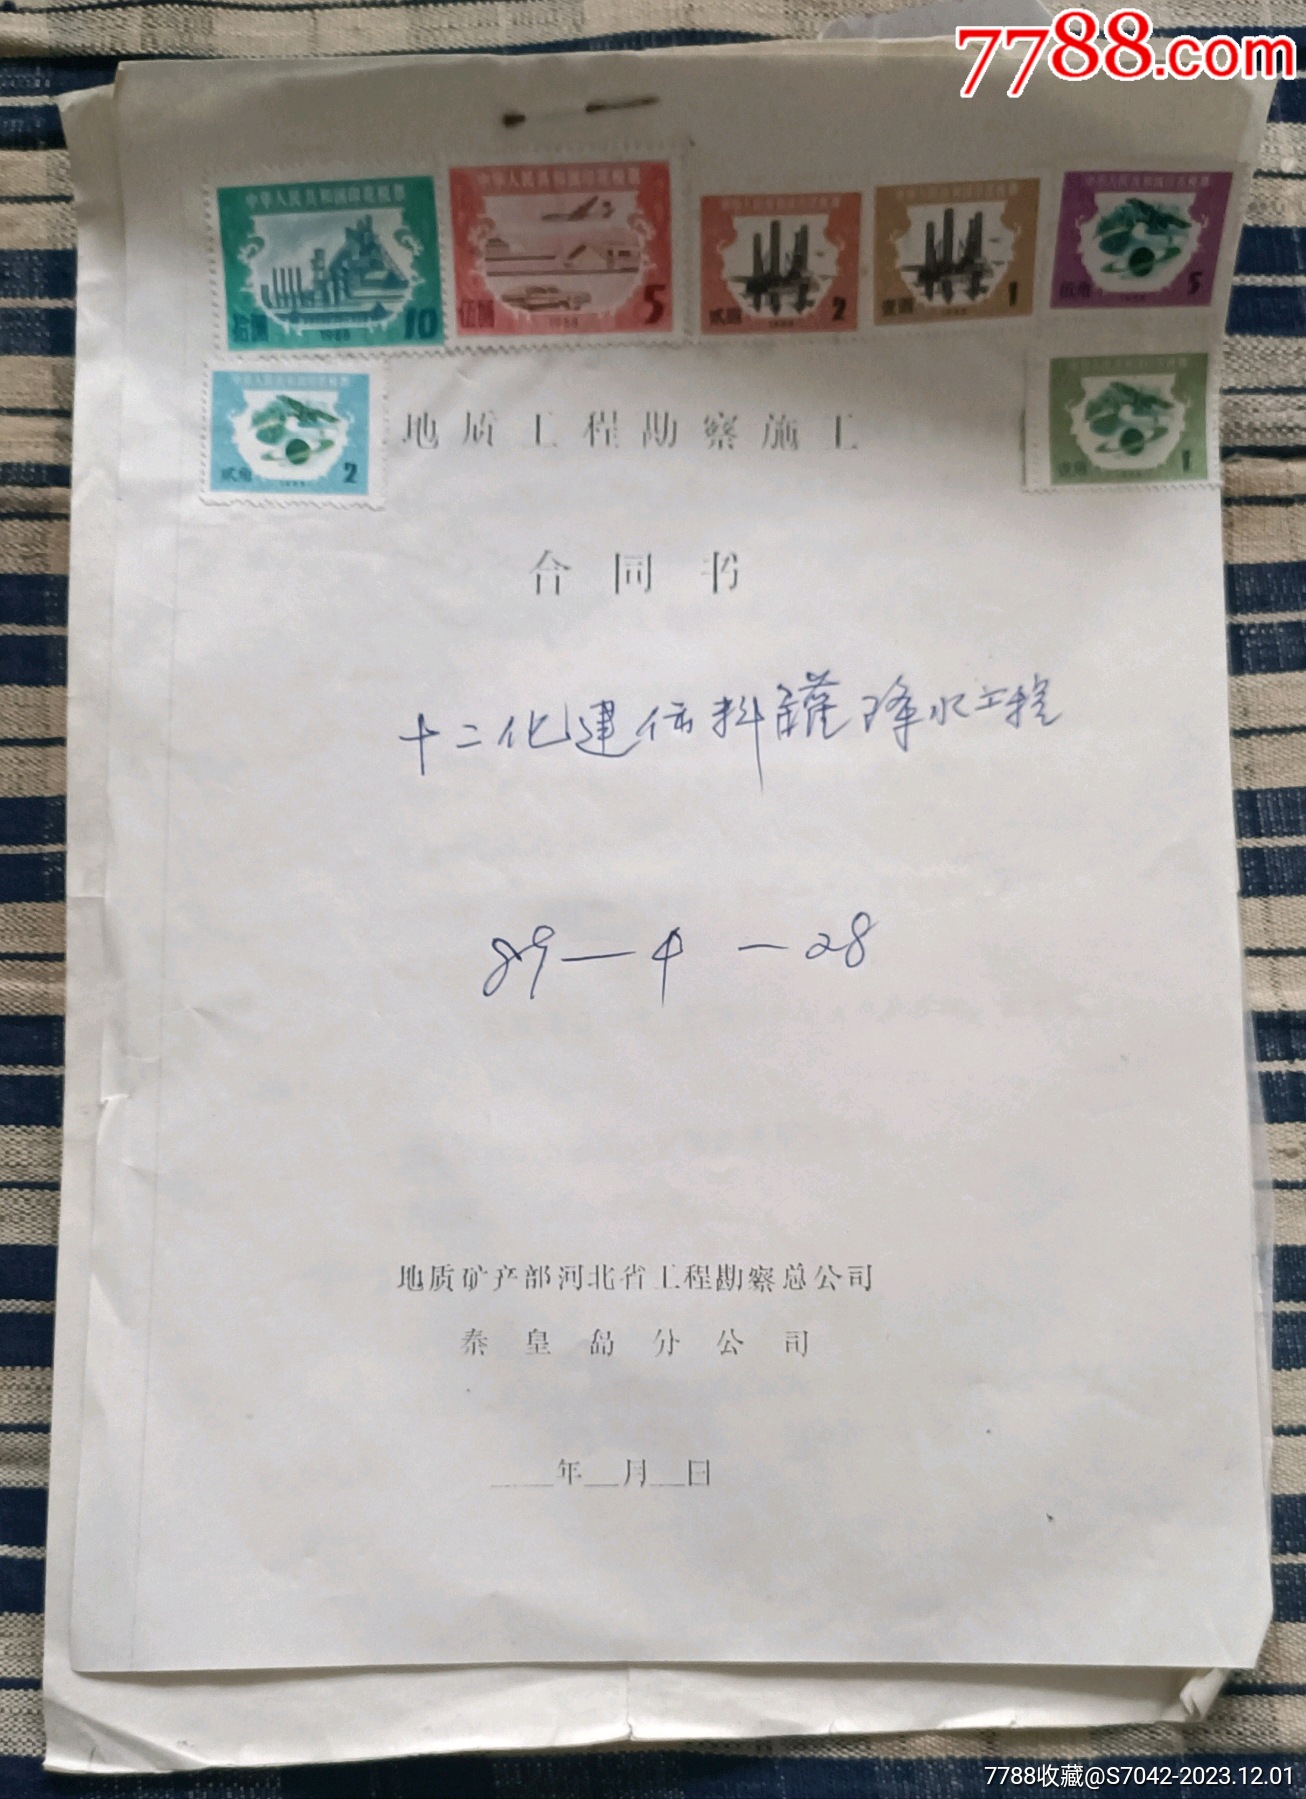 7788.com
中华人民共和国印花税票
拾圆 1988 10
中华人民共和国印花税票
伍圆 1988 5
中华人民共和国印花税票
贰圆 1988 2
中华人民共和国印花税票
壹圆 1988 1
中华人民共和国印花税票
伍角 1988 5
中华人民共和国印花税票
贰角 1988 2
中华人民共和国印花税票
壹角 1
地质工程勘察施工
合同书
十二化建 料罐降水工程
89—4—28
地质矿产部河北省工程勘察总公司
秦皇岛分公司
年 月 日
7788收藏@S7042-2023.12.01